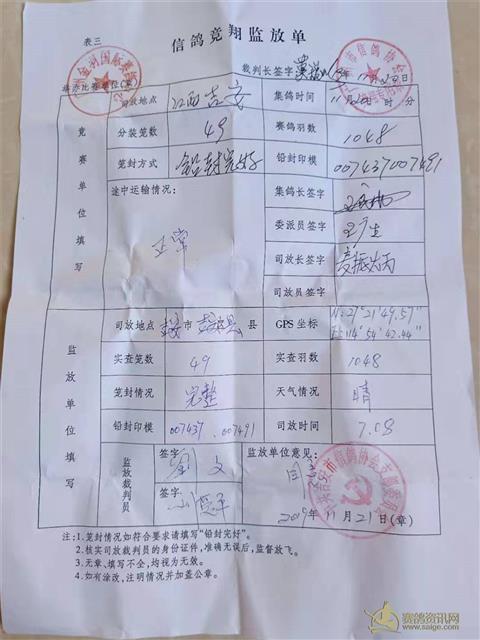 信鸽竞翔监放单
表三
裁判长签字 年11月20日
举办比赛单位(章)
竞赛单位填写
司放地点 江西吉安 集鸽时间 11月20日 时 分
分装笼数 49 赛鸽羽数 1048
笼封方式 铅封完好 铅封印模 007437 007491
途中运输情况: 集鸽长签字
正常
委派员签字
司放长签字
司放员签字
监放单位填写
司放地点 市 县 GPS坐标 N:27°21'49.57"
E:114°54'42.44"
实查笼数 49 实查羽数 1048
笼封情况 完整 天气情况 晴
铅封印模 007437.007491 司放时间 7.08
监放裁判员 签字 监放单位意见:
签字
2019年11月21日(章)
注:1.笼封情况如符合要求请填写"铅封完好"。
2.核实司放裁判员的身份证件,准确无误后,监督放飞。
3.无章、填写不全,均视为无效。
4.如有涂改,注明情况并加盖公章。
赛鸽资讯网
www.saige.com